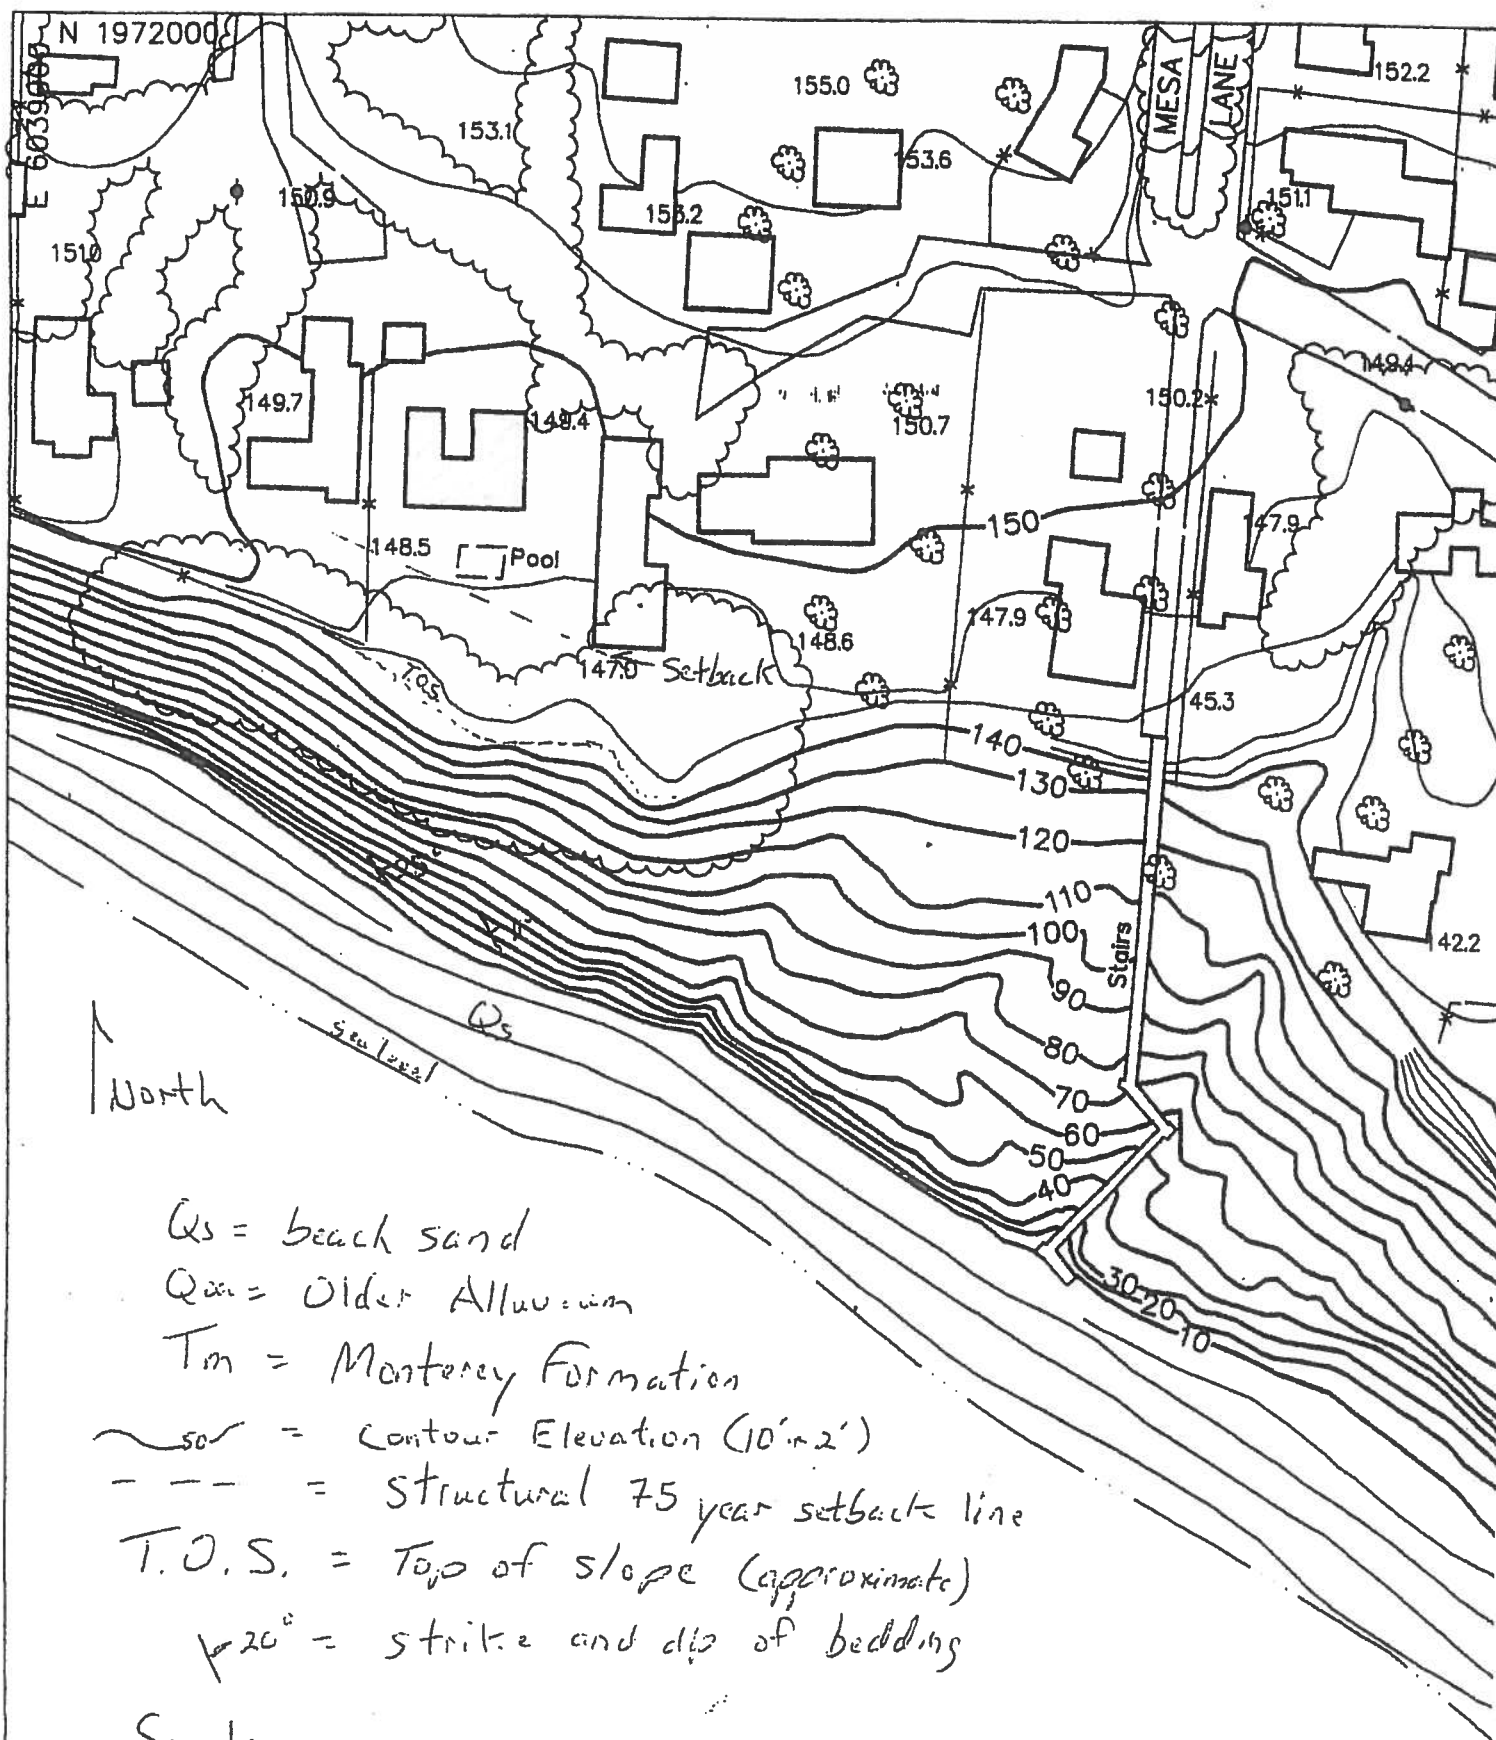 N 1972000
E 6039000
MESA
LANE
155.0
152.2
153.1
153.6
150.9
153.2
151.1
1510
149.4
149.7
149.4
150.7
150.2
150
147.9
148.5
Pool
148.6
147.9
147.0
Setback
T.O.S
45.3
140
130
120
110
100
Stairs
142.2
90
80
70
60
50
40
30
20
10
Qs
sea level
North
Qs = beach sand
= Older Alluvium
Tm = Monterey Formation
50 = Contour Elevation (10' 2')
- - - = structural 75 year setback line
T.O.S. = Top of slope (approximate)
20° = strike and dip of bedding